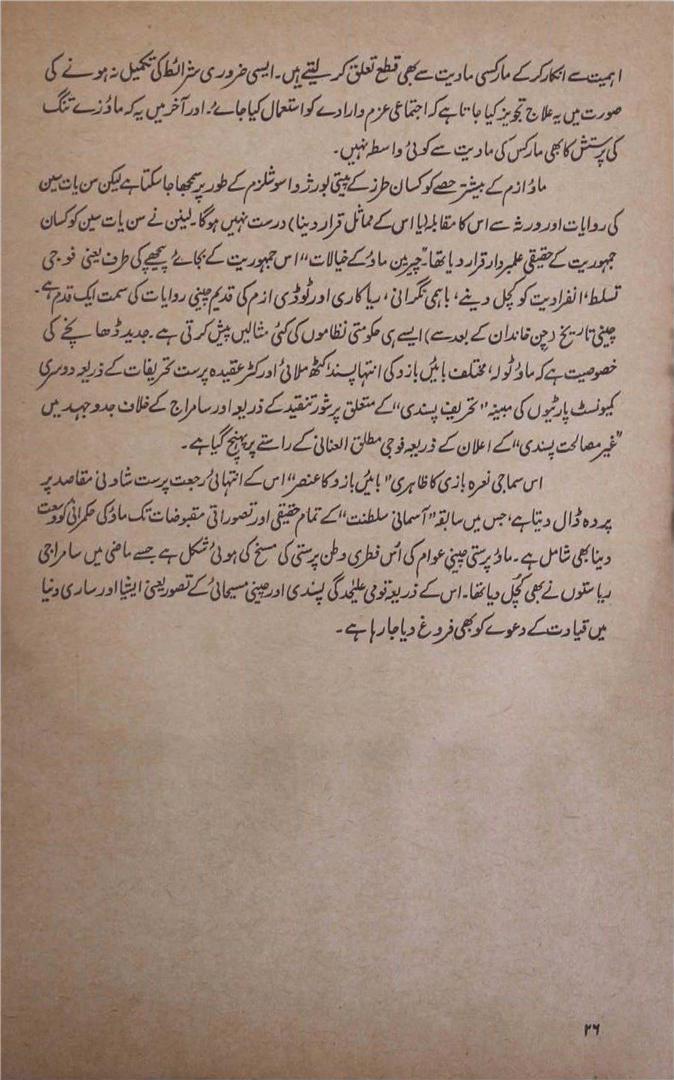 اہمیت سے انکار کر کے مارکسی مادیت سے بھی قطع تعلق کر لیتے ہیں۔ ایسی ضروری شرائط کی تکمیل نہ ہونے کی
صورت میں یہ علاج تجویز کیا جاتا ہے کہ اجتماعی عزم و ارادے کو استعمال کیا جائے۔ اور آخر میں یہ کہ ماؤ زے تنگ
کی پرستش کا بھی مارکس کی مادیت سے کوئی واسطہ نہیں۔
ماؤ ازم کے بیشتر حصے کو کسان طرز کے پیتی بورژوا سوشلزم کے طور پر سمجھا جا سکتا ہے لیکن سن یات سین
کی روایات اور ورثہ سے اس کا مقابلہ (یا اس کے مماثل قرار دینا) درست نہیں ہوگا۔ لینن نے سن یات سین کو کسان
جمہوریت کے حقیقی علمبردار قرار دیا تھا۔ "چیرمین ماؤ کے خیالات" اس جمہوریت کے بجائے پیچھے کی طرف یعنی فوجی
تسلط، انفرادیت کو کچل دینے، باہمی نگرانی، ریاکاری اور ٹوڈی ازم کی قدیم چینی روایات کی سمت ایک قدم ہے۔
چینی تاریخ (چن خاندان کے بعد سے) ایسے ہی حکومتی نظاموں کی کئی مثالیں پیش کرتی ہے۔ جدید ڈھانچے کی
خصوصیت ہے کہ ماؤ ٹولہ، مختلف بائیں بازو کی انتہا پسند، کٹھ ملائی اور کٹر عقیدہ پرست تحریفات کے ذریعہ دوسری
کمیونسٹ پارٹیوں کی مبینہ "تحریف پسندی" کے متعلق پر شور تنقید کے ذریعہ اور سامراج کے خلاف جدوجہد میں
"غیر مصالحت پسندی" کے اعلان کے ذریعہ فوجی مطلق العنانی کے راستے پر پہنچ گیا ہے۔
اس سماجی نعرہ بازی کا ظاہری "بائیں بازو کا عنصر" اس کے انتہائی رجعت پرست شاونی مقاصد پر
پردہ ڈال دیتا ہے، جس میں سابقہ "آسمانی سلطنت" کے تمام حقیقی اور تصوراتی مقبوضات تک ماؤ کی حکمرانی کو وسعت
دینا بھی شامل ہے۔ ماؤ پرستی چینی عوام کی اس فطری وطن پرستی کی مسخ کی ہوئی شکل ہے جسے ماضی میں سامراجی
ریاستوں نے بھی کچل دیا تھا۔ اس کے ذریعہ قومی علیٰحدگی پسندی اور چینی مسیحائی کے تصور یعنی ایشیا اور ساری دنیا
میں قیادت کے دعوے کو بھی فروغ دیا جا رہا ہے۔
۲۶